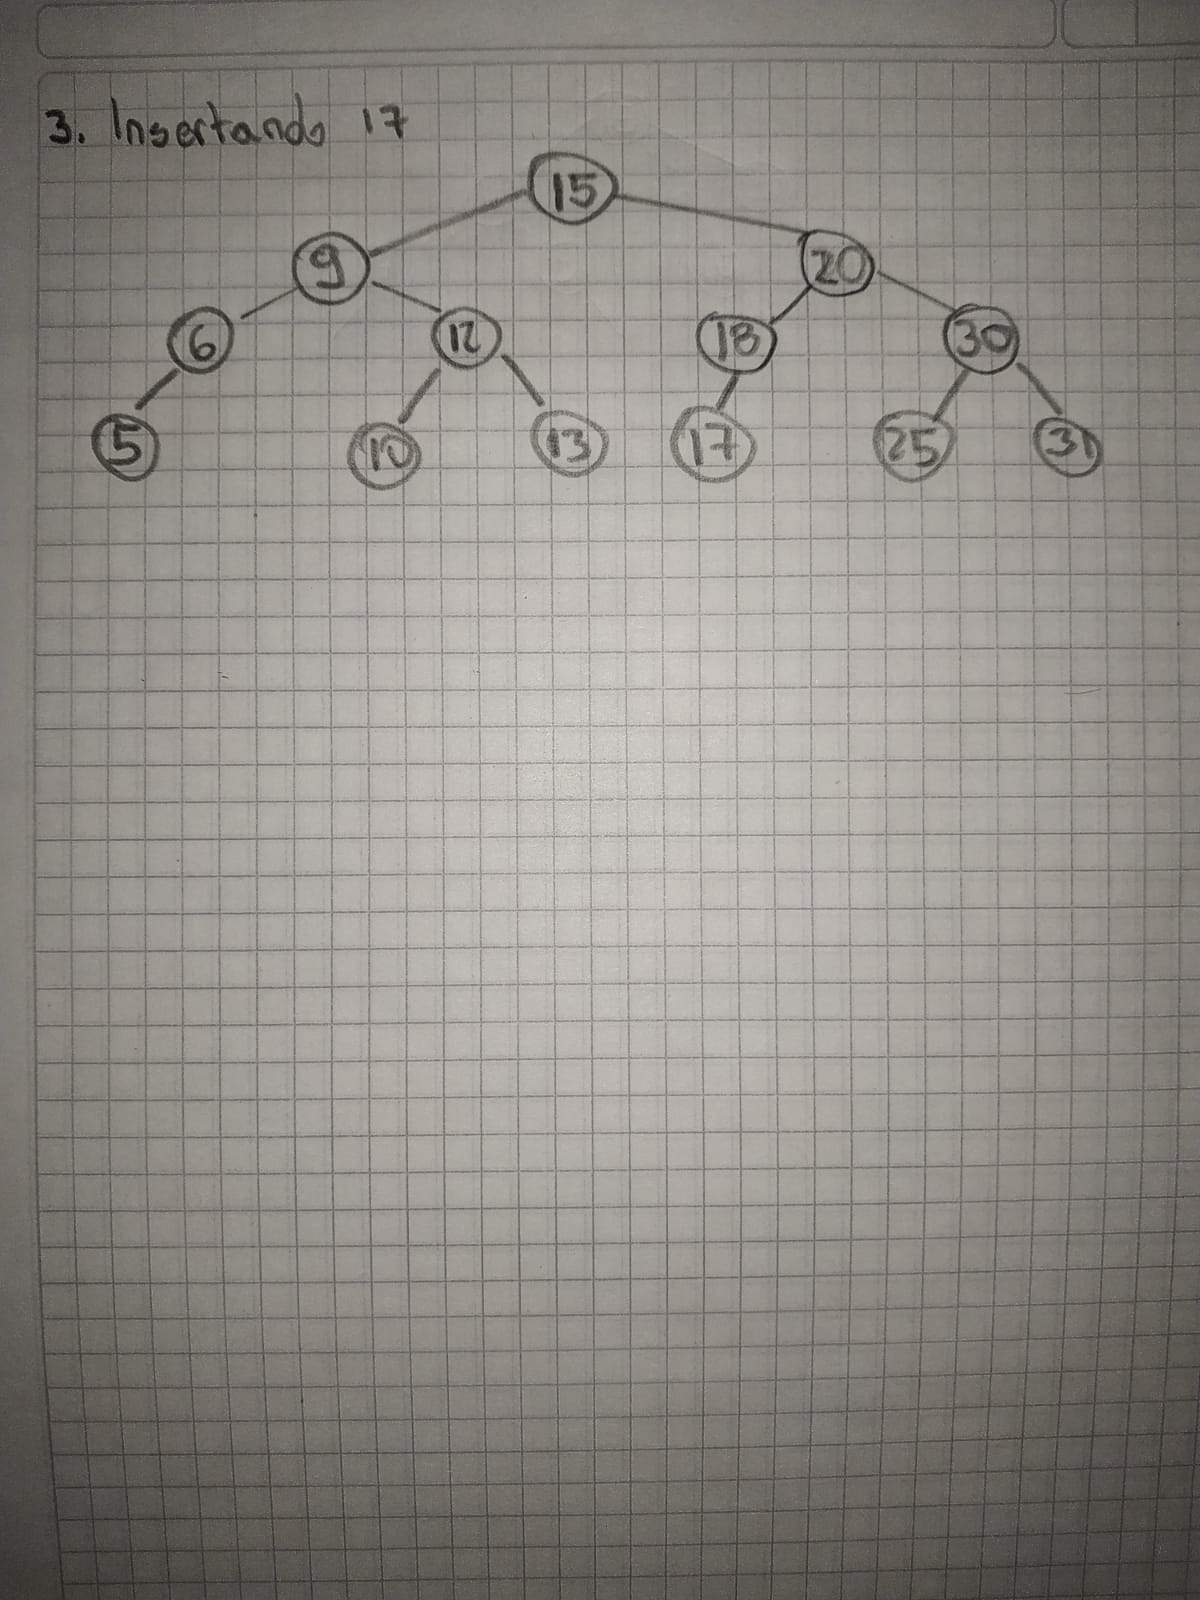 3. Insertando 17
15
9 20
6 12 18 30
5 10 13 17 25 31